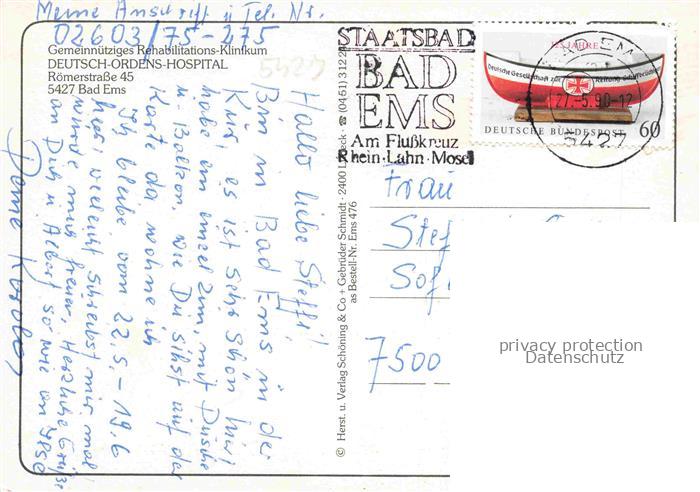 Meine Anschrift u Tel. Nr.
02603/75-275
Gemeinnütziges Rehabilitations-Klinikum
DEUTSCH-ORDENS-HOSPITAL
Römerstraße 45
5427 Bad Ems
5427
Hallo liebe Steffi!
Bin in Bad Ems in der
Kur, es ist sehr schön hier
habe ein einzelzim. mit Dusche
u. Balkon, wie Du sihst auf der
Karte da wohne ich
Ich bleibe vom 22.5.-19.6
hier, vieleicht schreibst mir mal
würde mich freuen, Herzliche Grüße
an Dich u. Albert so wie an
Deine
© Herst. u. Verlag Schöning & Co + Gebrüder Schmidt · 2400 Lübeck · ☎ (0451) 31
as Bestell-Nr. Ems 476
STAATSBAD
BAD
EMS
Am Flußkreuz
Rhein·Lahn·Mosel
125 JAHRE
Deutsche Gesellschaft zur Rettung Schiffbrüchiger
DEUTSCHE BUNDESPOST 60
27.-5.90-12
5427
Frau
Stef
Sof
7500
privacy protection
Datenschutz